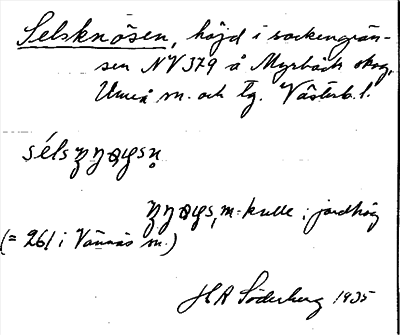 Selsknösen, höjd i sockengrän-
sen NV 379 å Myrbäck skog,
Umeå sn. och tg. Västerb. l.
séls
m. kulle; jordhög
(= 261 i Vännäs sn.)
H A Söderberg 1935